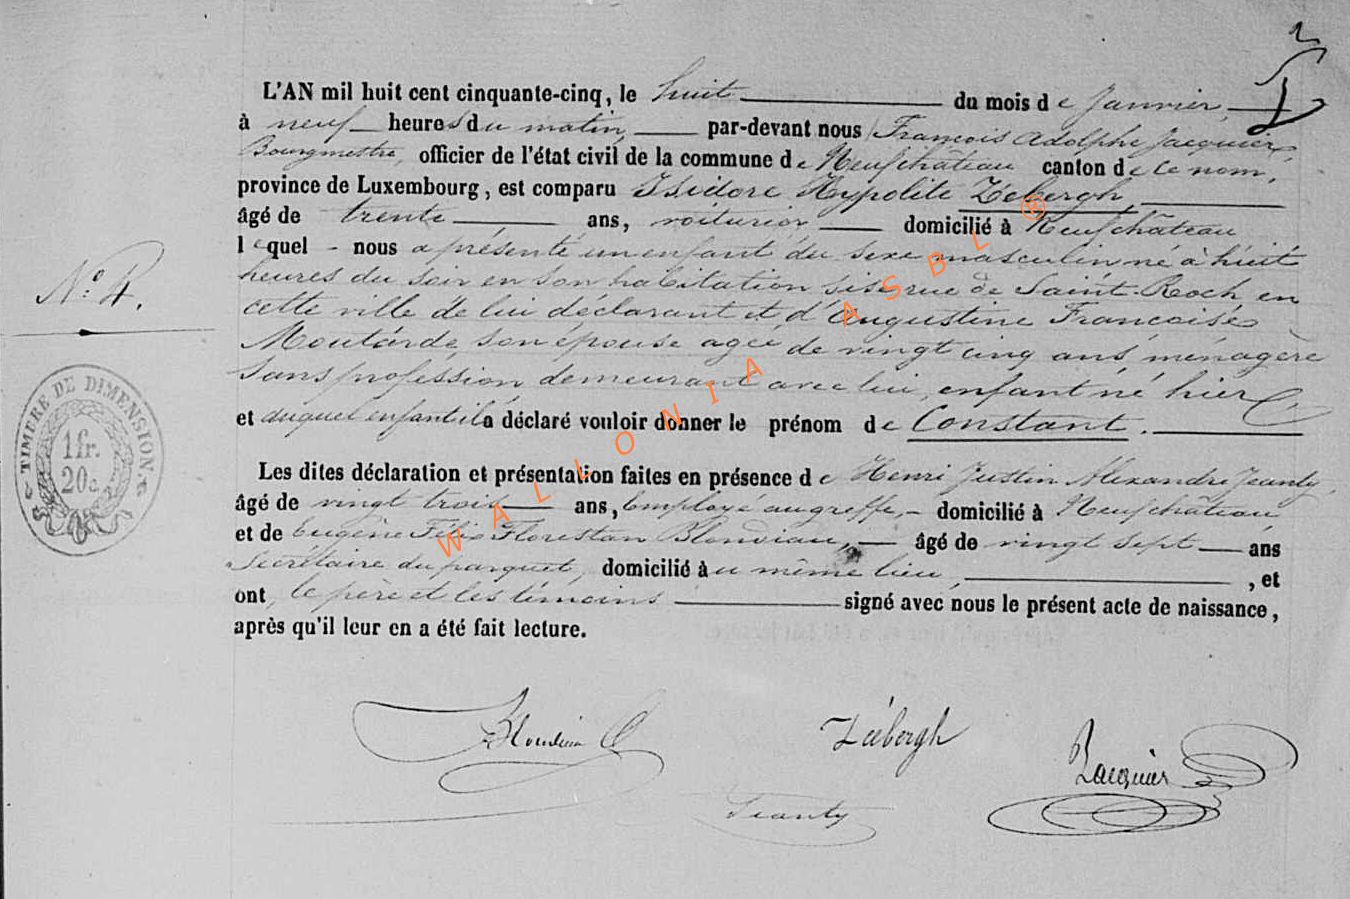 L'AN mil huit cent cinquante-cinq, le huit du mois de Janvier,
à neuf heures du matin, par-devant nous François Adolphe Jacquier,
Bourgmestre, officier de l'état civil de la commune de Neufchâteau canton de ce nom,
province de Luxembourg, est comparu Isidore Hypolite Zébergh,
âgé de trente ans, voiturier domicilié à Neufchâteau
lequel - nous a présenté un enfant du sexe masculin né à huit
heures du soir en son habitation sise rue de Saint-Roch, en
cette ville de lui déclarant et d'Augustine Françoise
Moutarde, son épouse agée de vingt cinq ans, ménagère
sans profession demeurant avec lui, enfant né hier
et duquel enfant il a déclaré vouloir donner le prénom de Constant.
Les dites déclaration et présentation faites en présence de Henri Justin Alexandre Jeanty,
âgé de vingt trois ans, Employé au greffe, - domicilié à Neufchâteau
et de Eugène Félix Florestan Blondiau, âgé de vingt sept ans
Secrétaire du parquet, domicilié au même lieu, , et
ont, le père et les témoins signé avec nous le présent acte de naissance,
après qu'il leur en a été fait lecture.
N.° 4.
TIMBRE DE DIMENSION.
1 fr.
20 c.
WALLONIA ASBL ®
Blondiau
Zébergh
Jacquier
Jeanty